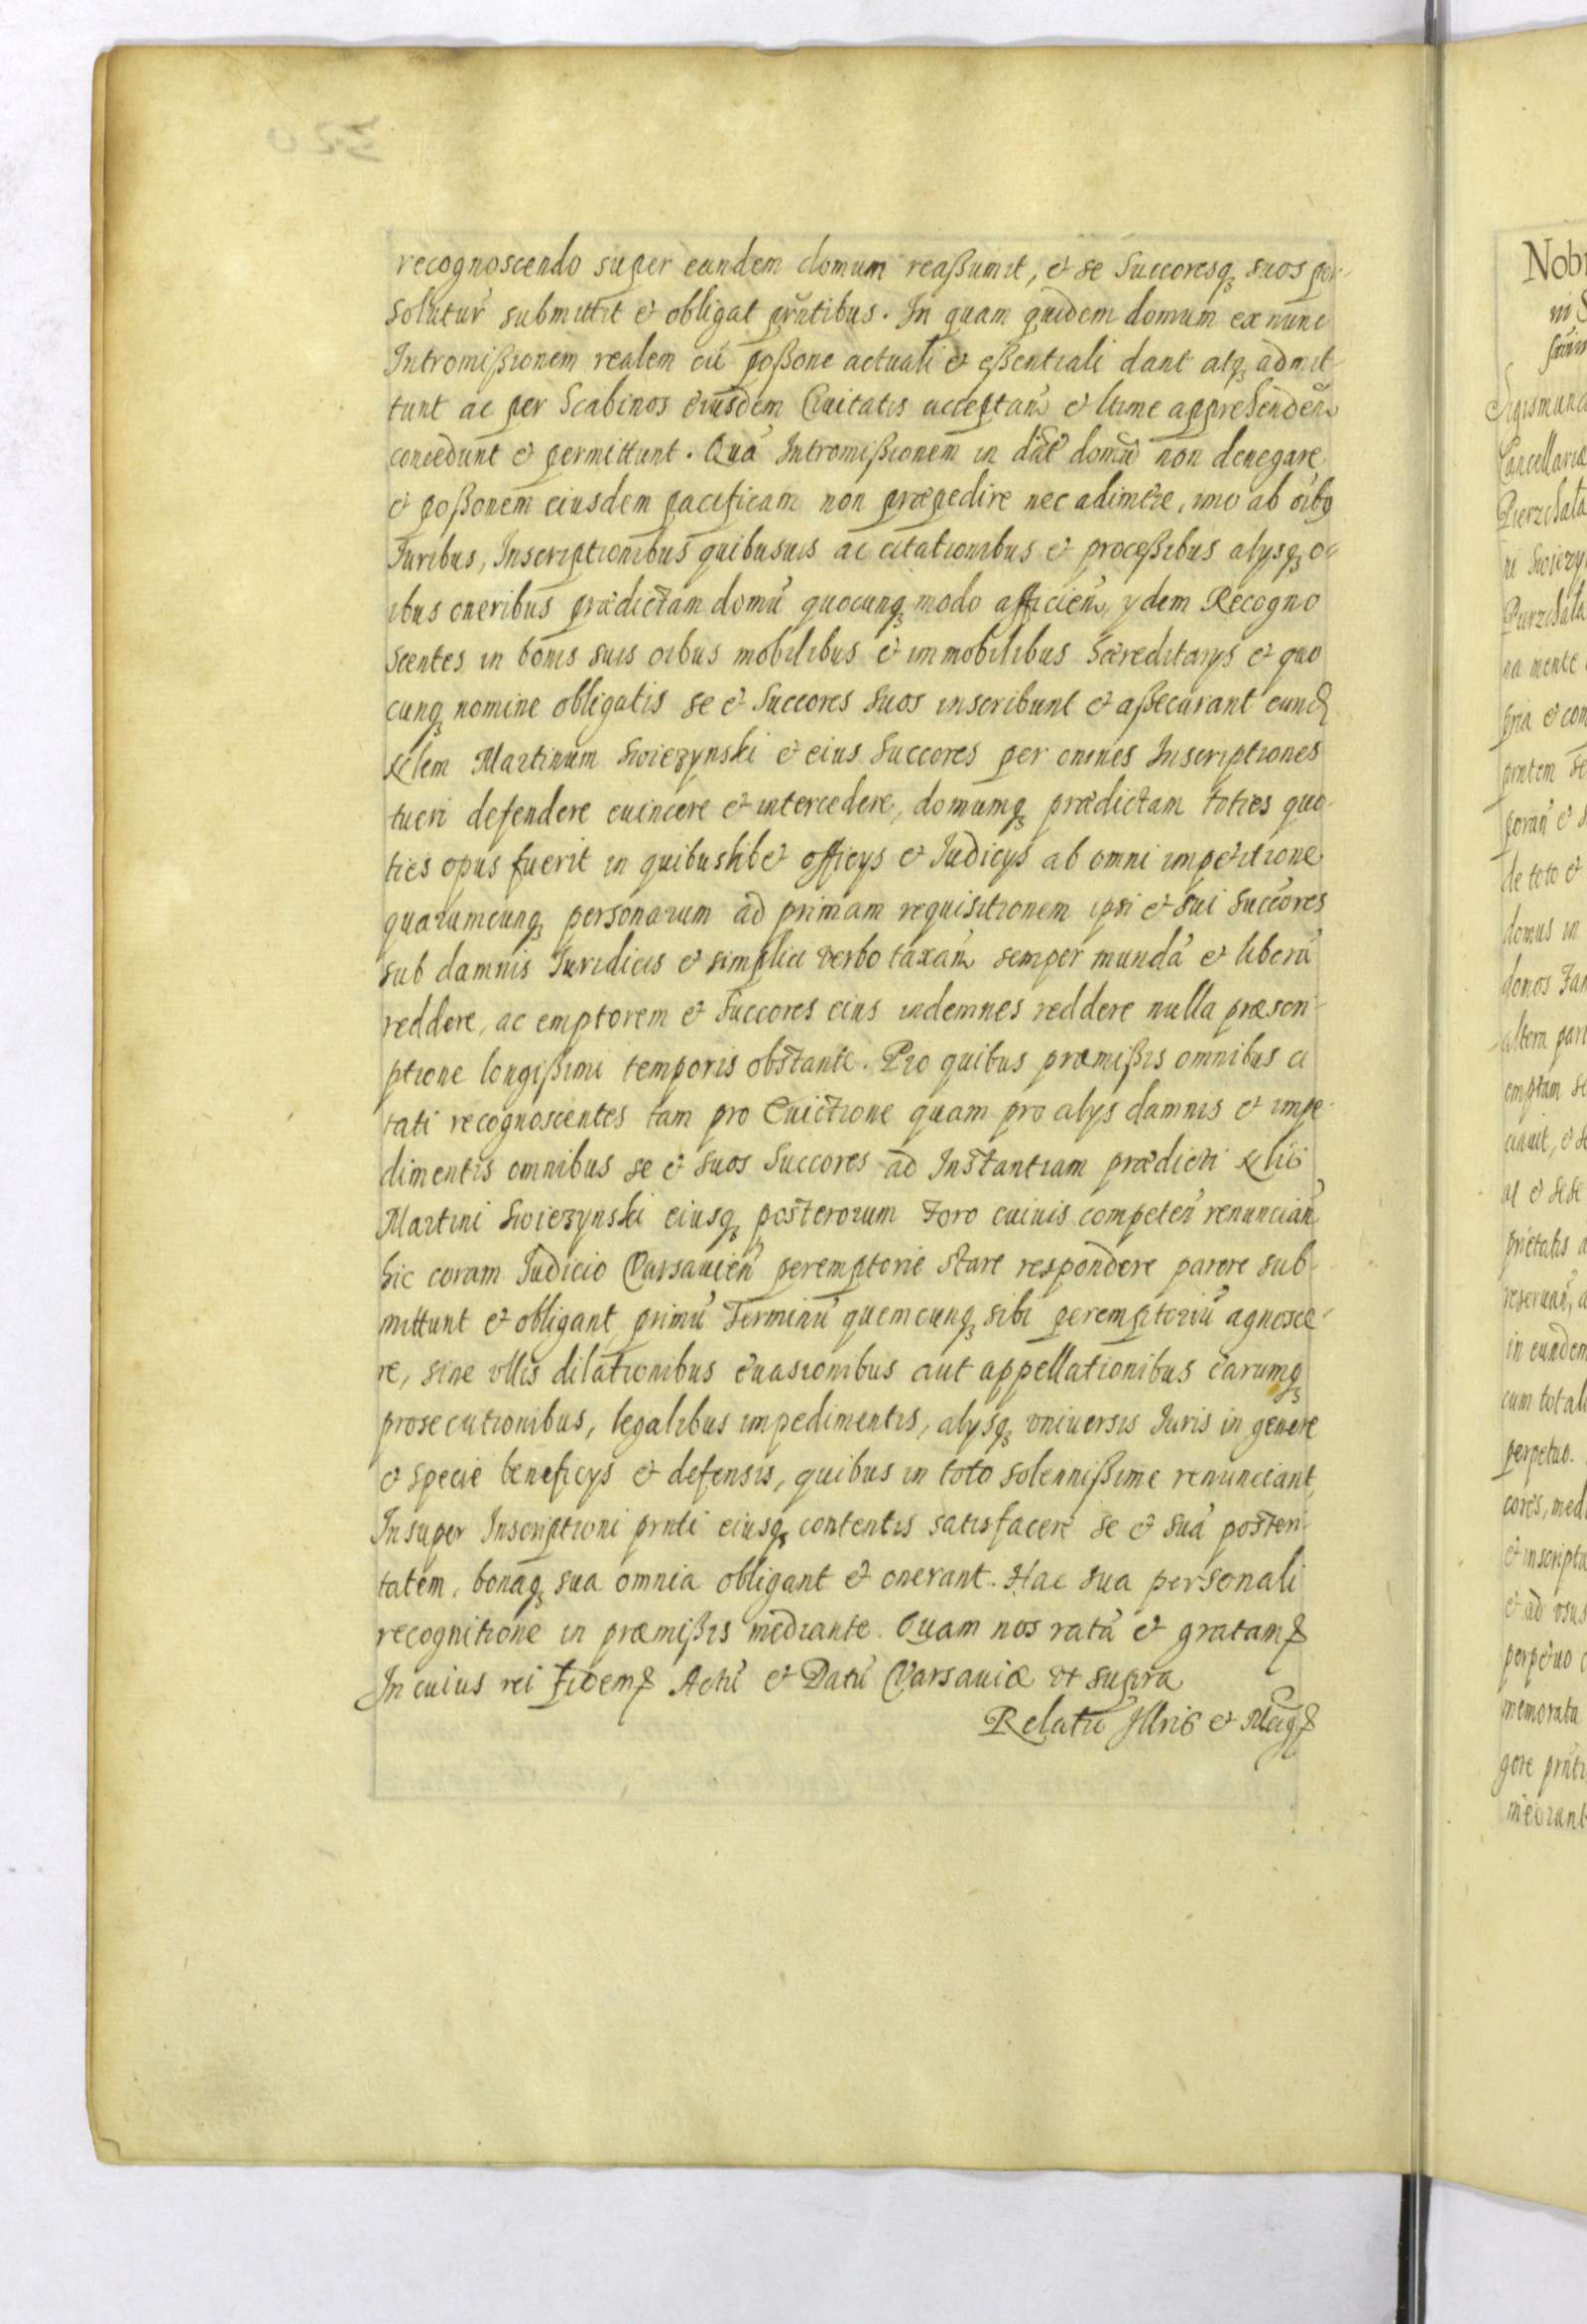 recognoscendo super eandem domum reaßumit, et se Succoresq suos per-
soluturũ submittit et obligat pñtibus. In quam quidem domum ex nunc
Intromißionem realem cũ poßone actuali et eßentiali dant atq admit-
tunt ac per Scabinos eiusdem Ciuitatis acceptañ et ltime apprehendeñ
concedunt et permittunt. Quã Intromißionem in dẽt domũ non denegare
et poßonem eiusdem pacificam non præpedire nec adimere, imo ab oibq
Iuribus, Inscriptionibus quibusuis ac citationibus et proceßibus alysq o-
ibus oneribus prædictam domũ quocunq modo afficieñ, ydem Recogno
scentes in bonis suis oibus mobilibus et immobilibus hæreditarys et quo
cunq nomine obligatis se et Succores suos inscribunt et aßecurant eund
Martinum Swiezynski et eius Succores per omnes Inscriptiones
tueri defendere euincere et intercedere, domumq prædictam toties quo-
ties opus fuerit in quibuslibet officys et Iudicys ab omni impetitione
quarumcunq personarum ad primam requisitionem ipsi et sui Succores
sub damnis Iuridicis et simplici verbo taxañ semper mundã et liberã
reddere, ac emptorem et Succores eius indemnes reddere nulla præscri-
ptione longißimi temporis obstante. Pro quibus præmißis omnibus ci
tati recognoscentes tam pro Euictione quam pro alys damnis et impe-
dimentis omnibus se et suos Succores ad Instantiam prædicti
Martini Swiezynski eiusq posterorum Foro cuiuis competeñ renunciañ
hic coram Iudicio Varsauieñ peremptorie stare respondere parere sub-
mittunt et obligant primũ Terminũ quemcunq sibi peremptoriũ agnosce-
re, sine ullis dilationibus euasionibus aut appellationibus earumq
prosecutionibus, legalibus impedimentis, alysq vniuersis Iuris in genere
et specie beneficys et defensis, quibus in toto solennißime renunciant,
Insuper Inscriptioni prnti eiusq contentis satisfacere se et suã posteri-
tatem, bonaq sua omnia obligant et onerant. Hac sua personali
recognitione in præmißis mediante. Quam nos ratã et gratam
In cuius rei fidem Actũ et Datũ Varsauiæ vt supra
Relatũ Illris et Mag